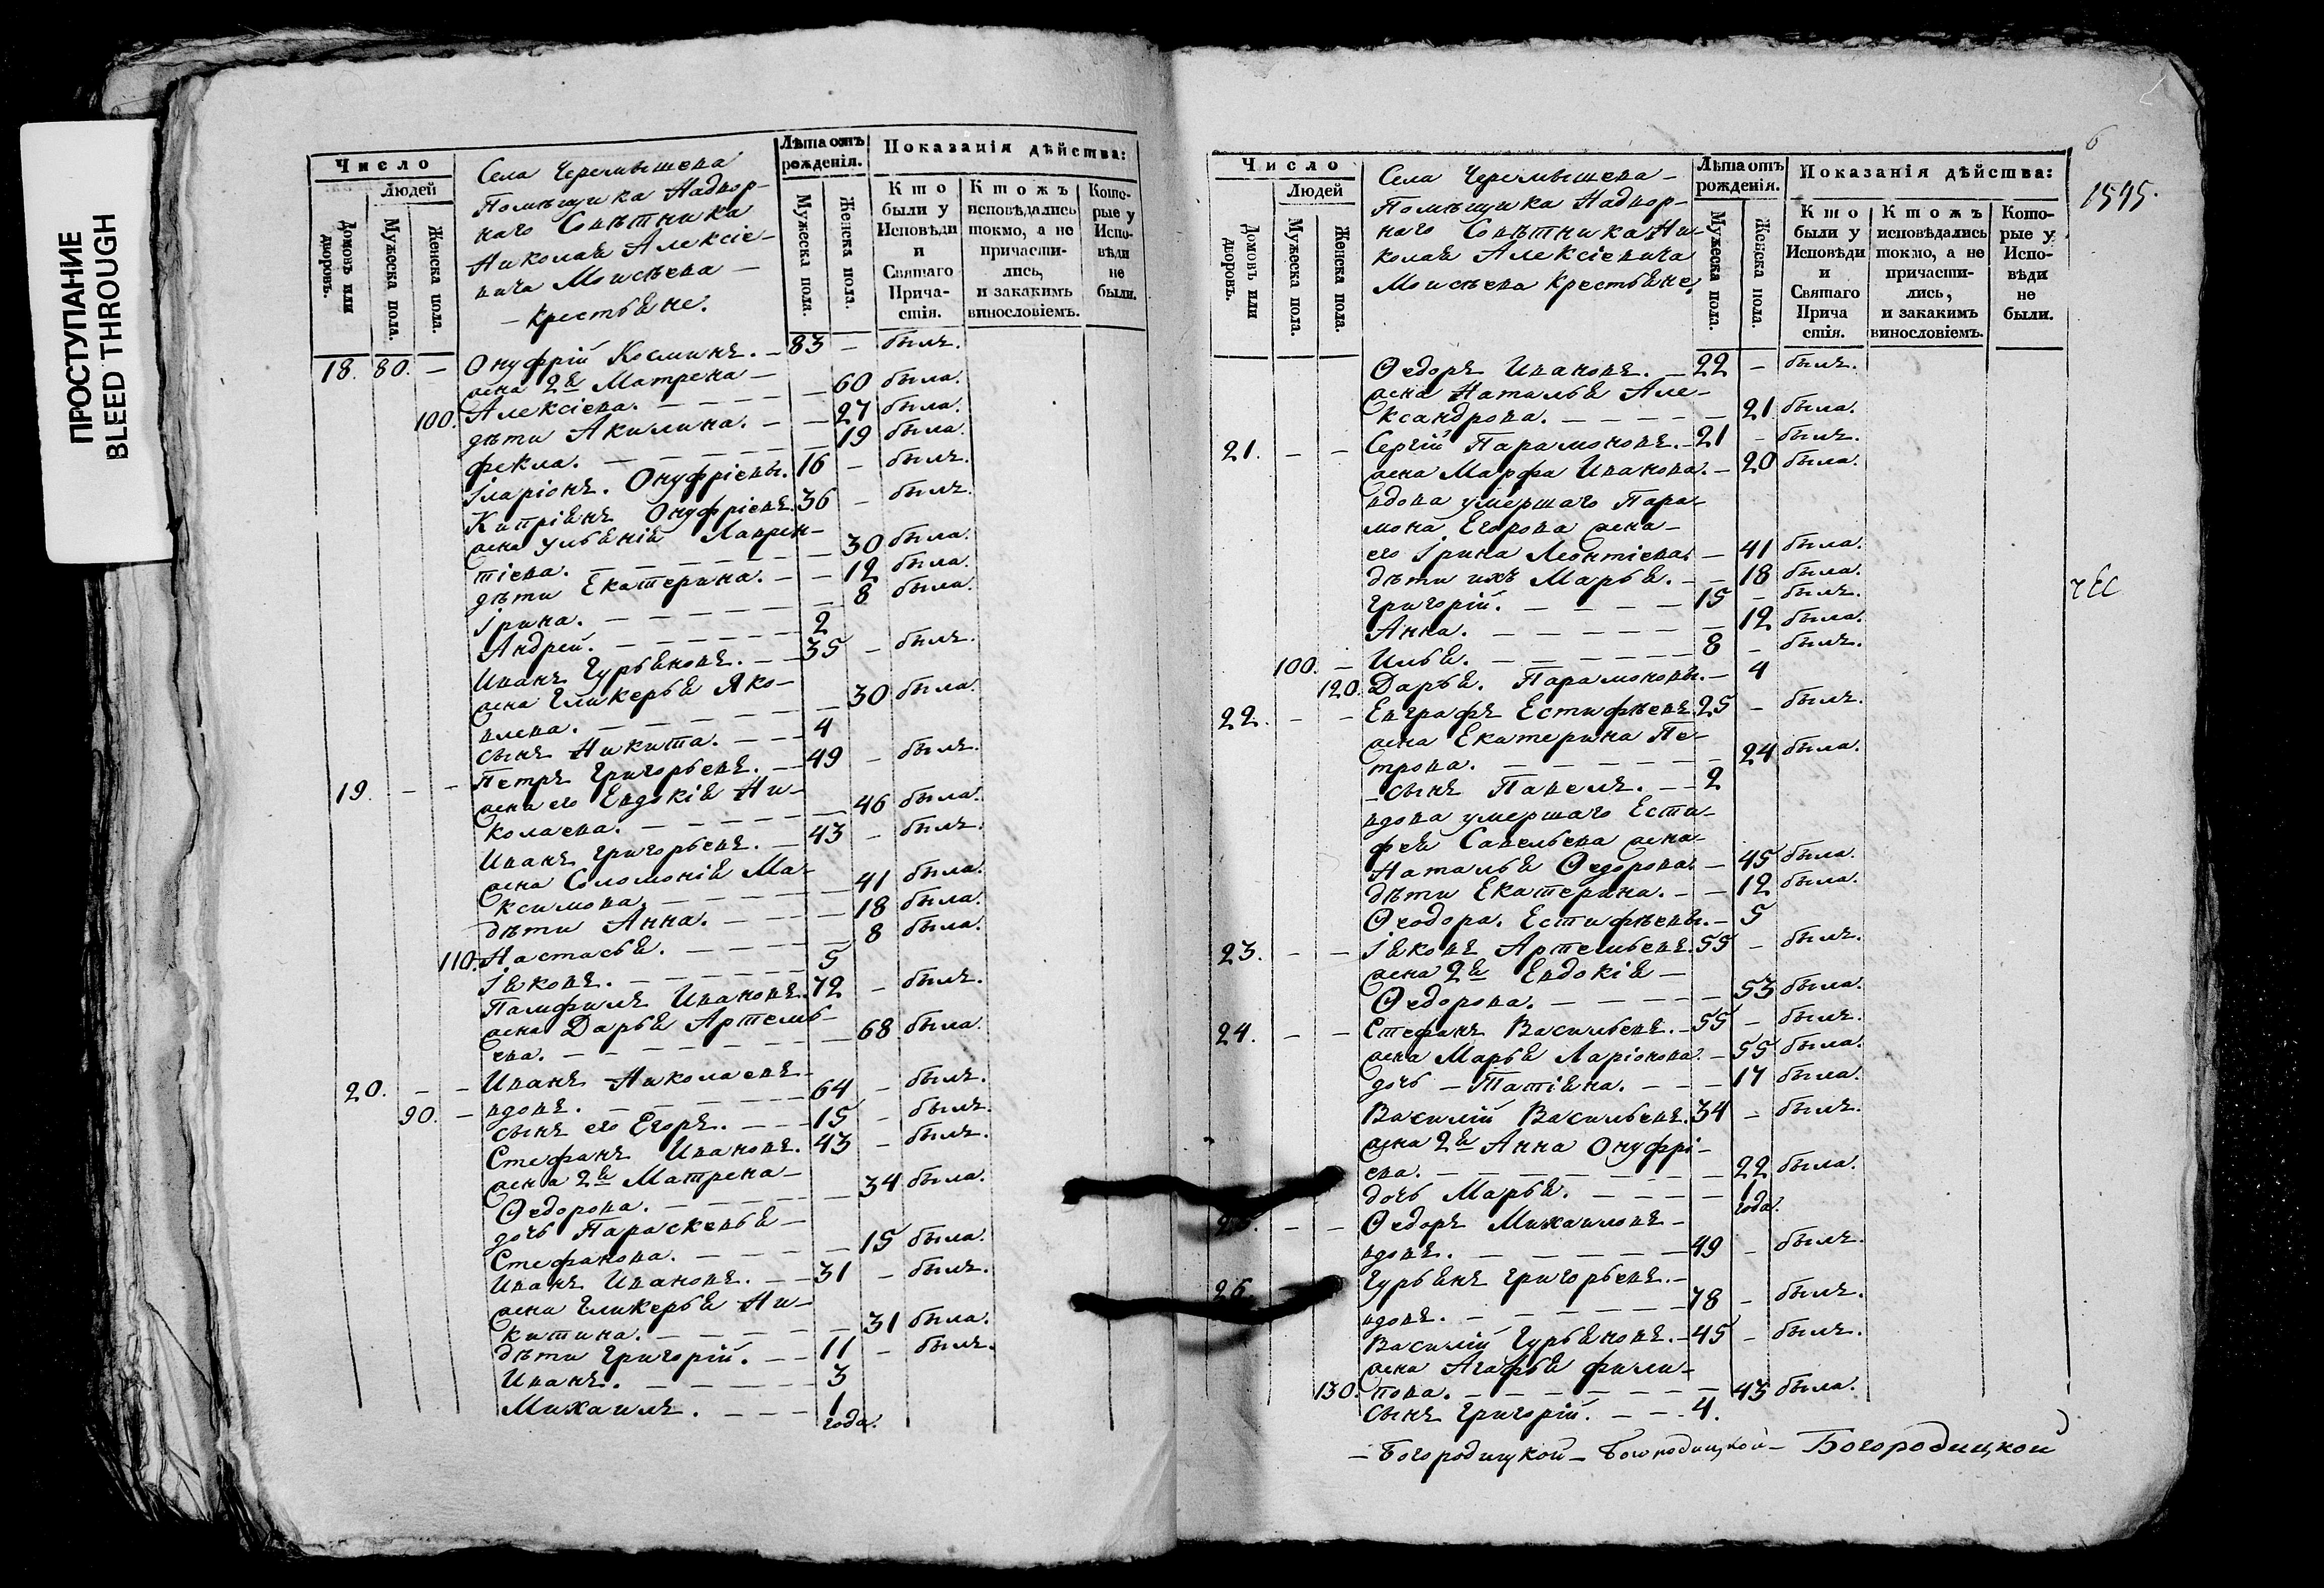 ПРОСТУПАНИЕ
BLEED THROUGH
Число
Людей
Домовъ или дворовъ.
Мужеска пола.
Женска пола.
Села Черемышева
Помѣщика Надвор-
наго Совѣтника
Николая Алексіе-
вича Моисѣева —
— крестьяне.
Лѣта отъ рожденія.
Мужеска пола.
Женска пола.
Показанія дѣйства:
Кто были у Исповѣди и Святаго Прича-стія.
Ктожъ исповѣдались токмо, а не причасти-лись, и закакимъ винословіемъ.
Кото-рые у Испо-вѣди не были.
18. 80. — Онуфрій Косминъ. — 83 — былъ.
жена 2я Матрена —
Алексіева. — — — — — 60 была.
100. дѣти Акилина. — — 27 была.
Фекла. — — — — — 19 была.
Іларіонъ. Онуфріевы. 16 — былъ.
Кипріянъ Онуфріевъ. 36 — былъ.
жена Ульянія Лаврен-
тіева. — — — — — 30 была.
дѣти Екатерина. — — 12 была.
Ірина. — — — — — 8 была.
Андрей. — — — — 2
Иванъ Гурьяновъ. — — 35 — былъ.
жена Гликерья Яко-
влева. — — — — — 30 была.
сынъ Никита. — — — 4
19. — — Петръ Григорьевъ. — 49 — былъ.
жена его Евдокія Ни-
колаева. — — — — — 46 была.
Иванъ Григорьевъ. — 43 — былъ.
жена Соломонія Ма-
ксимова. — — — — 41 была.
дѣти Анна. — — — — 18 была.
110. Настасья. — — — — 8 была.
Іяковъ. — — — — — 5
Памфилъ Ивановъ. 72 — былъ.
жена Дарья Артемь-
ева. — — — — — — 68 была.
20. — — Иванъ Николаевъ —
вдовъ. — — — — — 64 — былъ.
90. — сынъ его Егоръ. — — 15 — былъ.
Стефанъ Ивановъ. 43 — былъ.
жена 2я Матрена —
Ѳедорова. — — — — 34 была.
дочь Параскевья —
Стефанова. — — — — 15 была.
Иванъ Ивановъ. — — 31 — былъ.
жена Гликерья Ни-
китина. — — — — — 31 была.
дѣти Григорій. — — 11 — былъ.
Иванъ. — — — — — 3
Михаилъ. — — — 1 года.
6
1595.
Число
Людей
Домовъ или дворовъ.
Мужеска пола.
Женска пола.
Села Черемышева —
Помѣщика Надвор-
наго Совѣтника Ни-
колая Алексіевича
Моисѣева крестьяне,
Лѣта отъ рожденія.
Мужеска пола.
Женска пола.
Показанія дѣйства:
Кто были у Исповѣди и Святаго Прича стія.
Ктожъ исповѣдались токмо, а не причасти-лись, и закакимъ винословіемъ.
Кото-рые у Испо-вѣди не были.
Ѳедоръ Ивановъ. — 22 — былъ.
жена Наталья Але-
ксандрова. — — — — — 21 была.
21. — — Сергій Парамоновъ. — 21 — былъ.
жена Марфа Иванова. — 20 была.
вдова умершаго Пара-
мона Егорова жена —
его Ірина Леонтіева. — 41 была.
дѣти ихъ Марья. — — 18 была.
Григорій. — — — — 15 — былъ.
Анна. — — — — — — 12 была.
Илья. — — — — — — 8 — былъ.
100. — 120. Дарья. Парамоновы. — 4
22. — — Евграфъ Естифѣевъ. 25 — былъ.
жена Екатерина Пе-
трова. — — — — — — 24 была.
— сынъ Павелъ. — — 2
вдова умершаго Ести-
фея Савельева жена —
Наталья Ѳедорова. — 45 была.
дѣти Екатерина. — — 12 была.
Ѳеодора. Естифѣевы. — 5
23. — — Іяковъ Артемьевъ. 55 — былъ.
жена 2я Евдокія —
Ѳедорова. — — — — — 53 была.
24. — — Стефанъ Васильевъ. — 55 — былъ.
жена Марья Ларіонова. — 55 была.
дочь — Татіяна. — — — 17 была.
Василій Васильевъ. 34 — былъ.
жена 2я Анна Онуфрі-
ева. — — — — — — — 22 была.
дочь Марья. — — — — 1 года.
25. — — Ѳедоръ Михаиловъ —
вдовъ. — — — — — — 49 — былъ.
26. Гурьянъ Григорьевъ. —
вдовъ. — — — — — — 78 — былъ.
Василій Гурьяновъ. — 45 — былъ.
жена Агафья Фили-
130. пова. — — — — — — — 43 была.
сынъ Григорій. — — — 4.
— Богородицкой — Богородицкой — Богородицкой